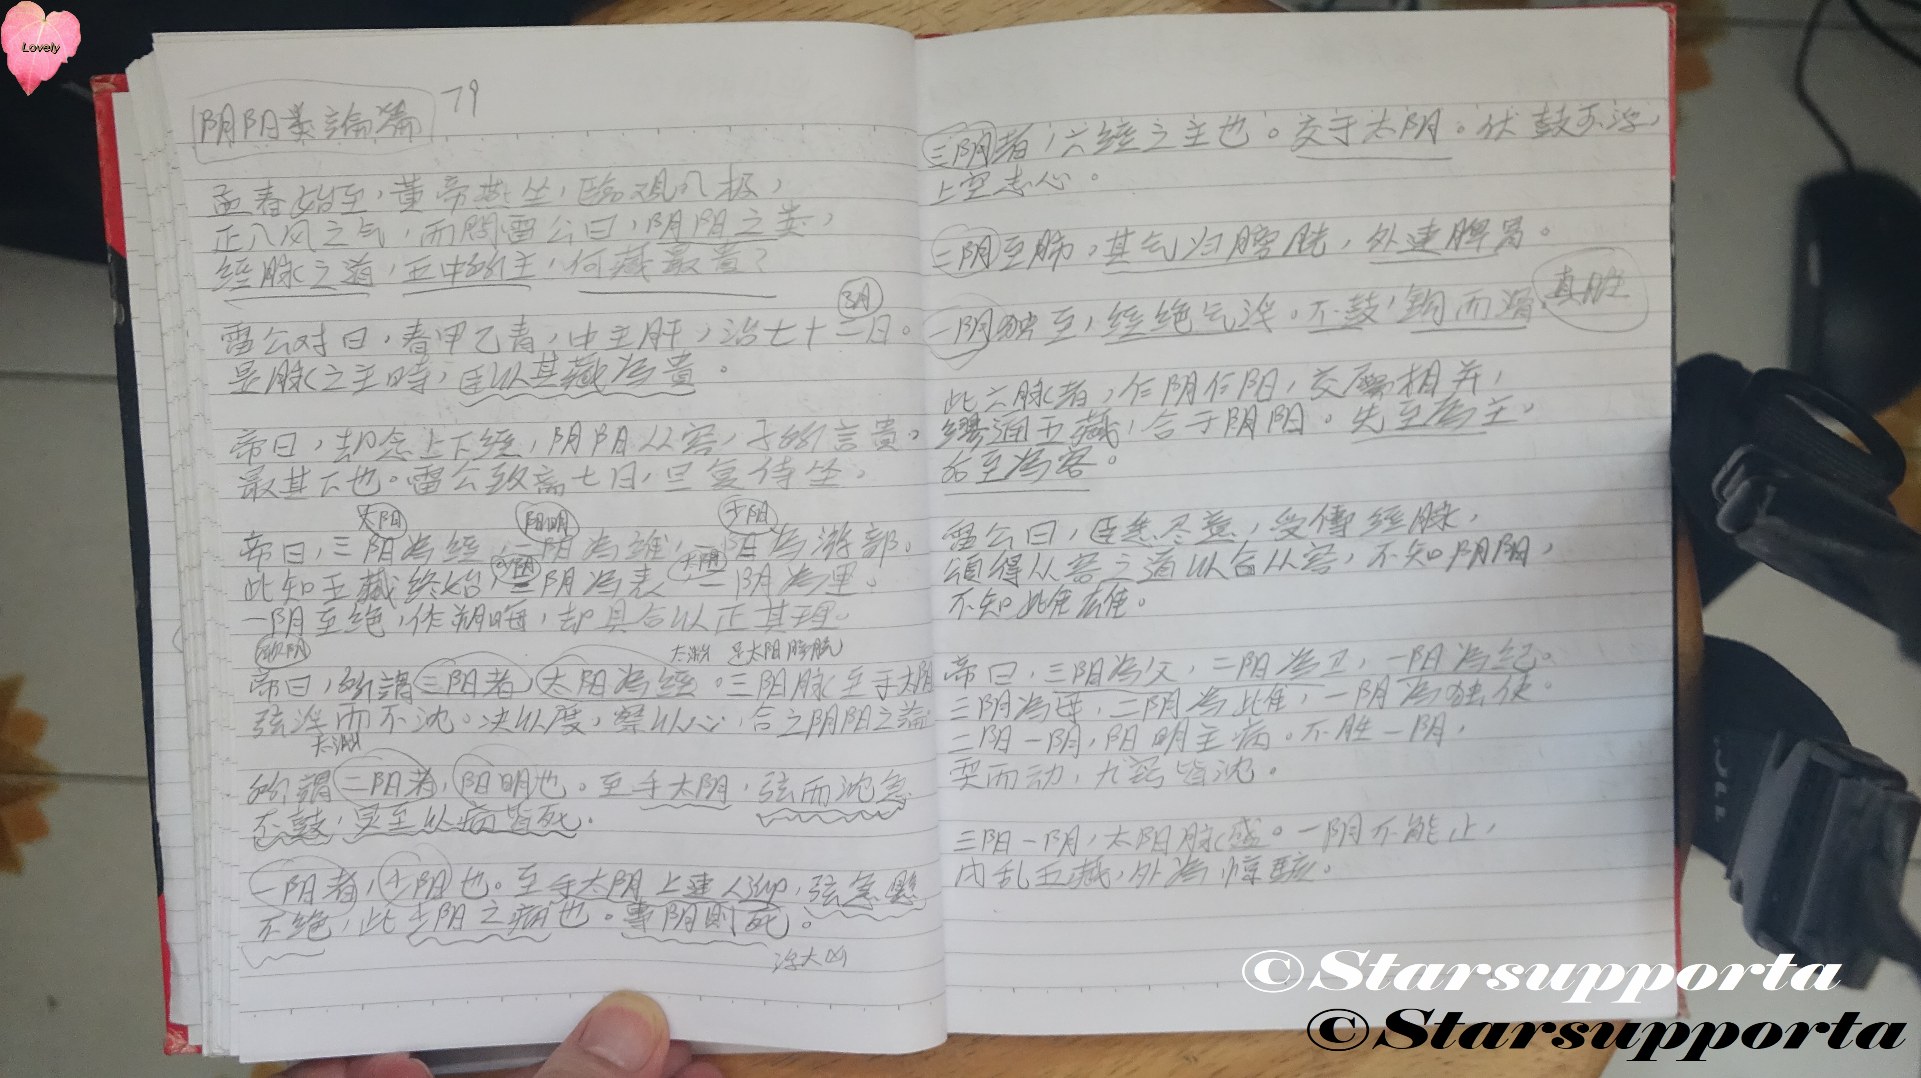 Lovely
阴阳类論篇 79
孟春始至，黄帝燕坐，臨观八极，
正八风之气，而問雷公曰，阴阳之类，
經脉之道，五中所主，何藏最貴？
3月
雷公对曰，春甲乙青，中主肝，治七十二日。
是脉之主時，臣以其藏為貴。
帝曰，却念上下經，阴阳从容，子所言貴。
最其下也。雷公致斋七日，旦复侍坐。
太阳 阳明 少阳
帝曰，三阳為經，二阳為維，一阳為游部。
此知五藏終始，三阴為表 二阴為里。
一阴至绝，作朔晦，却具合以正其理。
厥阴
太渊 足太阳膀胱
帝曰，所謂三阳者，太阳為經。三阳脉至手太阴
弦浮而不沈。决以度，察以心，合之阴阳之論
太渊
所謂二阳者，阳明也。至手太阴，弦而沈急
不鼓，炅至以病皆死。
一阳者，少阳也。至手太阴上連人迎，弦急懸
不绝，此少阳之病也。專阴則死。
三阴者，六經之主也。交于太阴。伏鼓不浮，
上空志心。
二阴至肺，其气归膀胱，外連脾胃。
一阴独至，經绝气浮。不鼓，鈎而滑。
真脏
此六脉者，乍阴乍阳，交屬相并，
繆通五藏，合于阴阳。先至為主，
后至為客。
雷公曰，臣悉尽意，受傳經脉，
頌得从容之道以合从容，不知阴阳，
不知此雌雄。
帝曰，三阳為父，二阳為卫，一阳為紀。
三阴為母，二阴為雌，一阴為独使。
二阳一阴，阳明主病。不胜一阴，
耎而动，九窍皆沈。
三阳一阴，太阳脉盛。一阴不能止，
内乱五藏，外為惊駭。
©Starsupporta
©Starsupporta